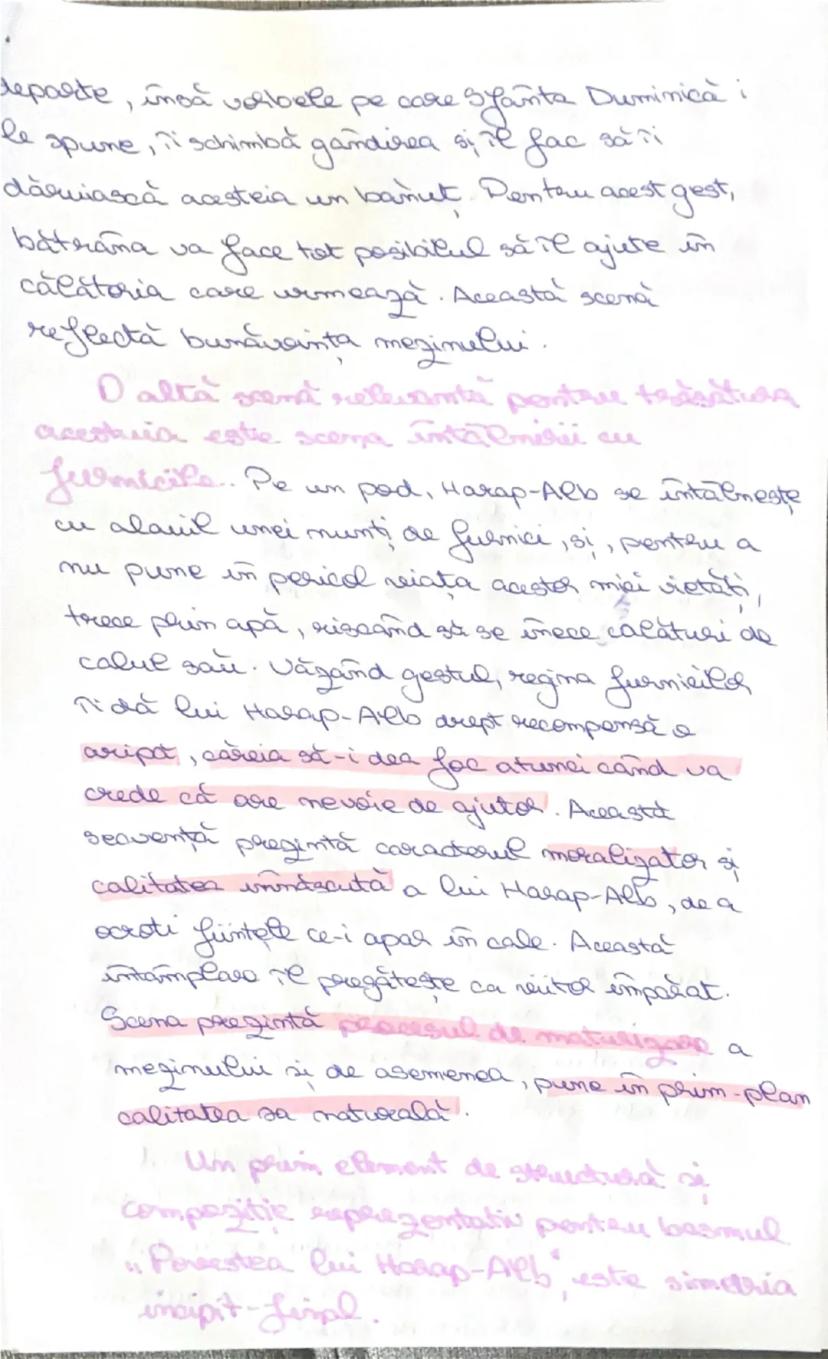 departe, însă vorbele pe care Sfânta Duminică i
le spune, îi schimbă gândirea și îl fac să îi
dăruiască acesteia un bănuț. Pentru acest gest,
bătrâna va face tot posibilul să îl ajute în
călătoria care urmează. Această scenă
reflectă bunăvoința mezinului.
O altă scenă relevantă pentru trăsătura
acestuia este scena întâlnirii cu
furnicile. Pe un pod, Harap-Alb se întâlnește
cu alaiul unei nunți de furnici, și, pentru a
nu pune în pericol viața acestor mici vietăți,
trece prin apă, riscând să se înece alături de
calul său. Văzând gestul, regina furnicilor
îi dă lui Harap-Alb drept recompensă o
aripă, căreia să-i dea foc atunci când va
crede că are nevoie de ajutor. Această
secvență prezintă caracterul moralizator și
calitatea înnăscută a lui Harap-Alb, de a
ocroti ființele ce-i apar în cale. Această
întâmplare îl pregătește ca viitor împărat.
Scena prezintă procesul de maturizare a
mezinului și de asemenea, pune în prim-plan
calitatea sa naturală.
Un prim element de structură și
compoziție reprezentativ pentru basmul
„Povestea lui Harap-Alb", este simetria
incipit-final.